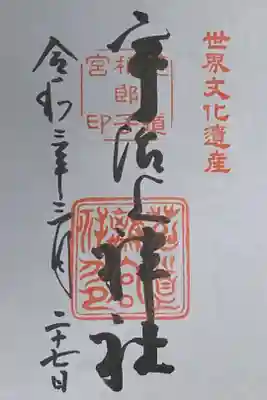 世界文化遺産
宇治上神社
宮印
令和三年三月二十七日